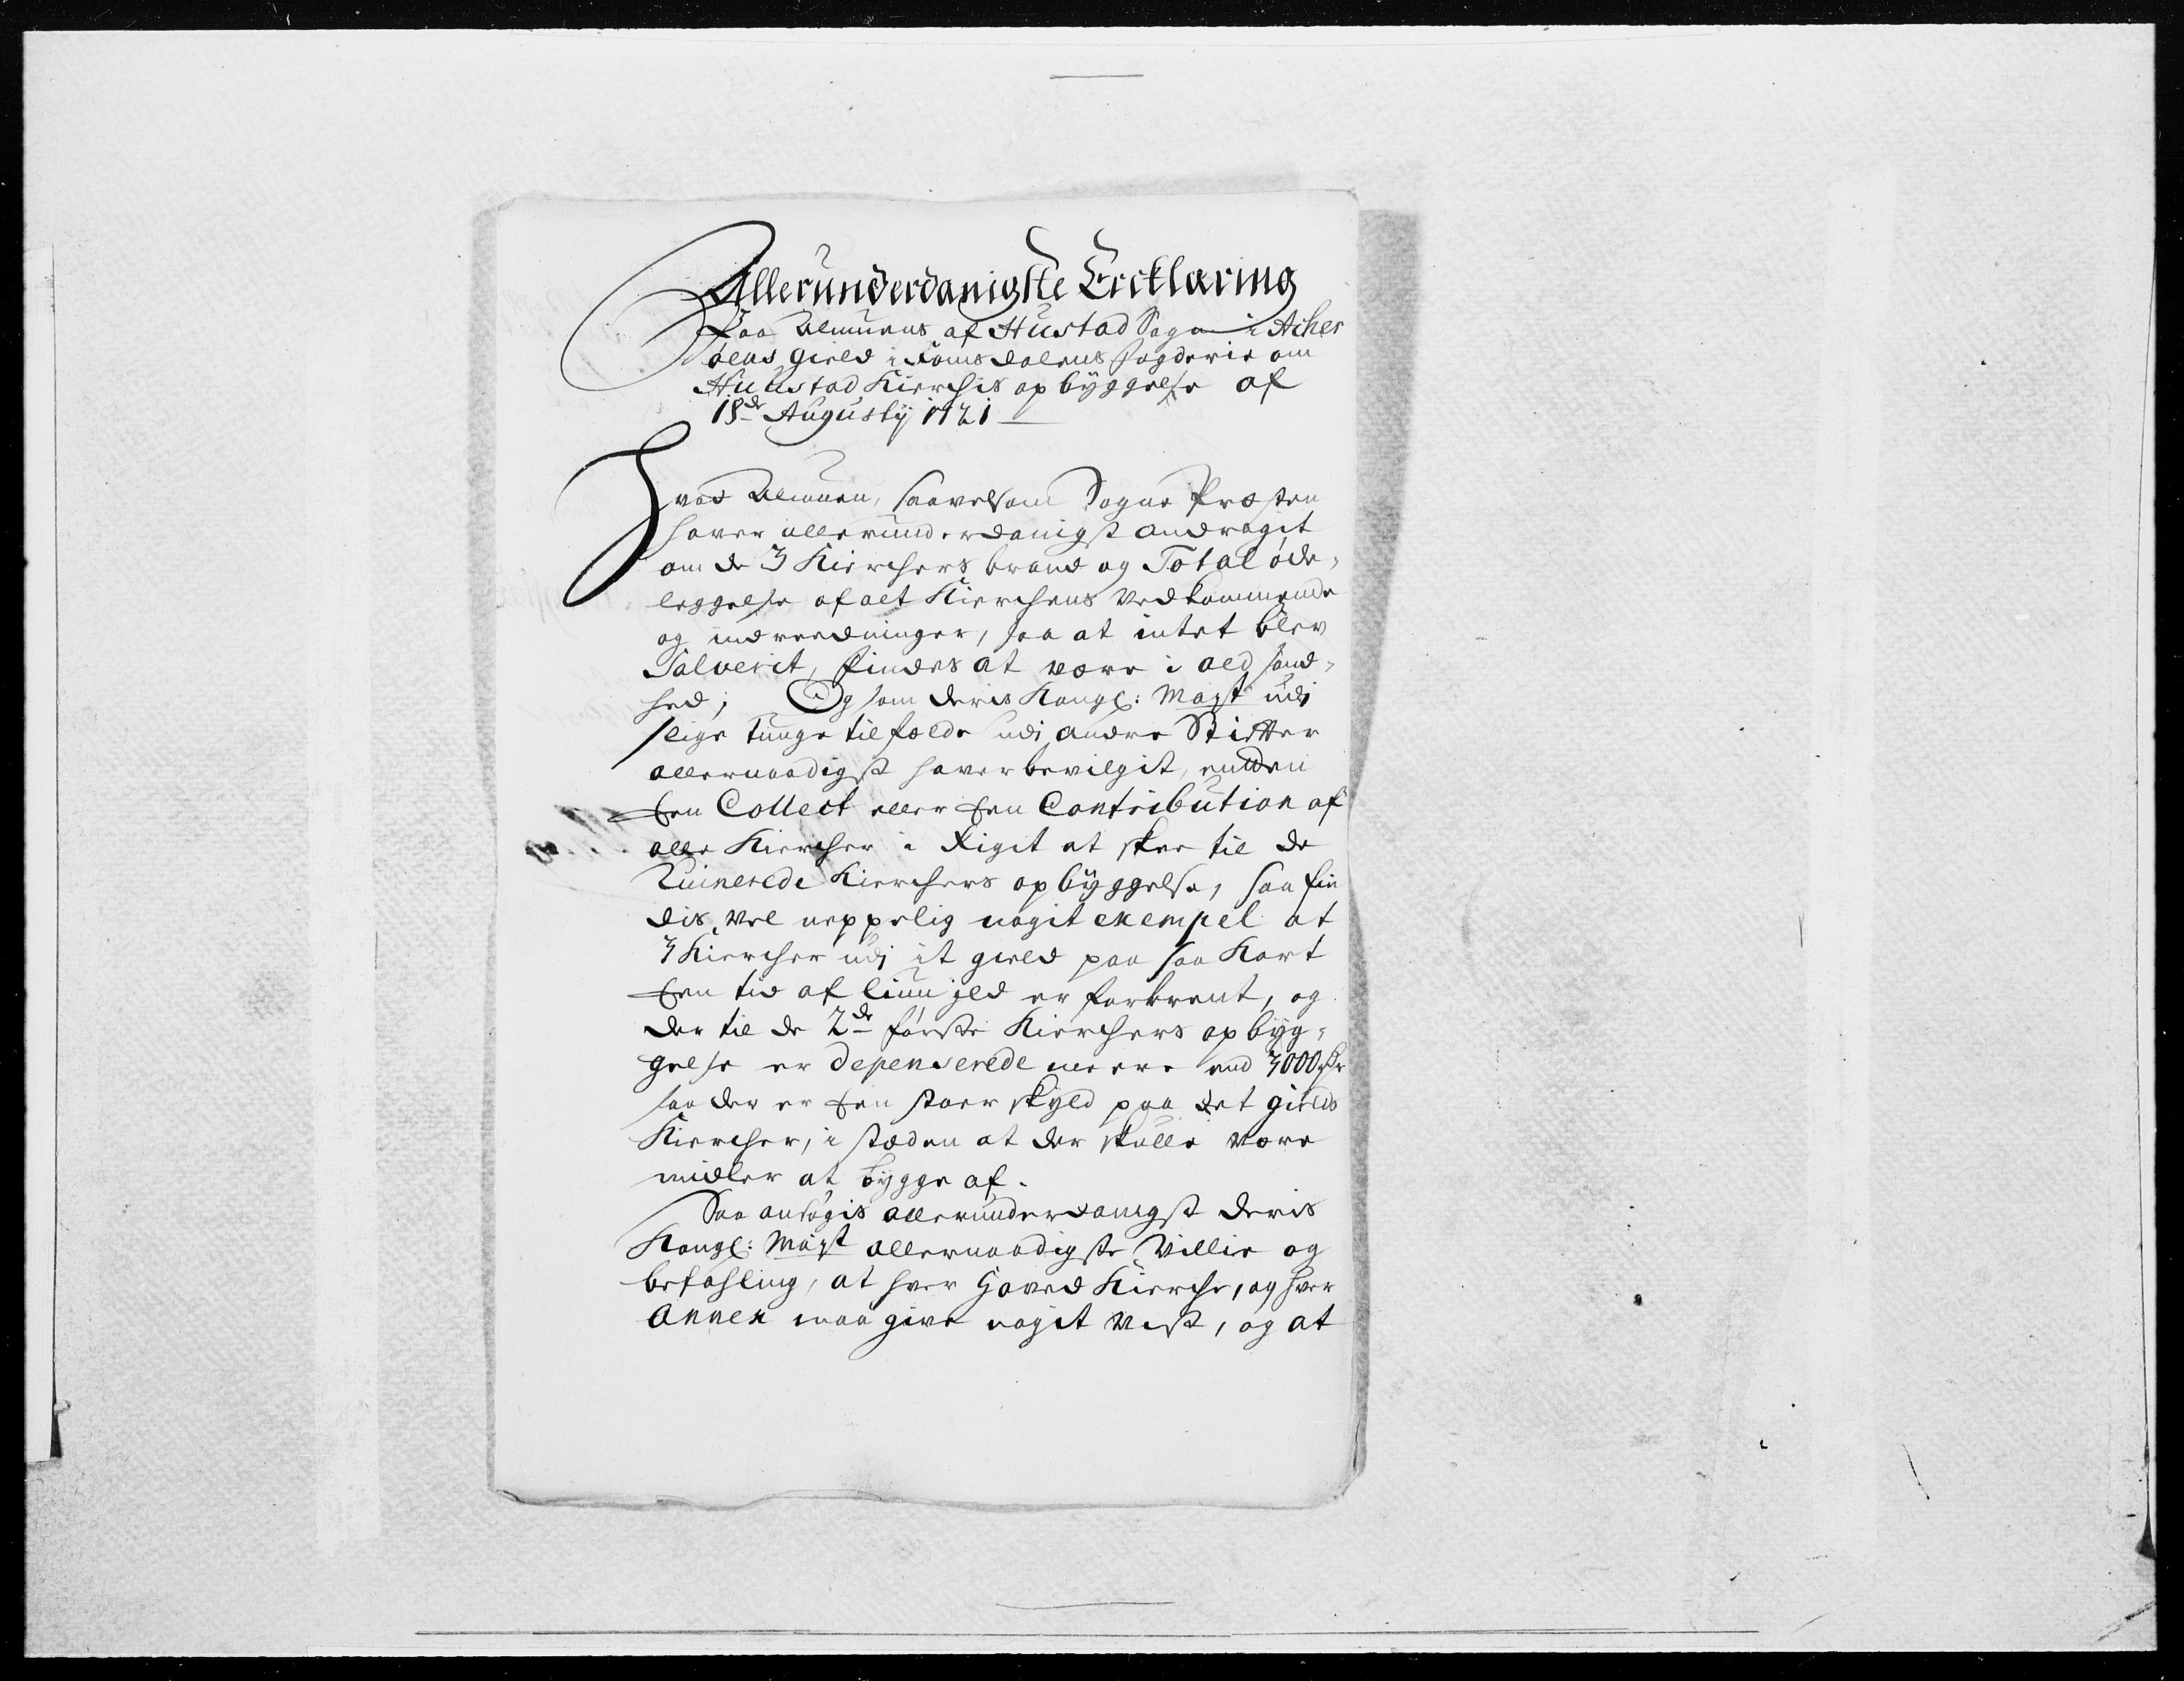 Allerunderdanigste Ercklæring
Paa Almuens af Hustad Sogn i Acher
öens gield i Romsdalens fogderie om
Huustad Kierchis opbÿggelse af
18de Augustÿ 1721
Hvad Almuen, saavelsom Sogne Præsten
haver allerunderdanigst andragit
om de 3 Kierchers brand og Total öde-
leggelse af alt Kierchens vedkommende
og indreedninger, saa at intet blev
Salverit, findes at være i ald sand-
hed; Og som deris Kongl: Mayst udi
slige tunge tilfælde udi andre Stifter
allernaadigst haver bevilgit, endten
Een Collect eller Een Contribution af
alle Kiercher i Riget at skee til de
Ruinerede Kierchers opbÿggelse, saa fin
dis vel neppelig nogit exempel at
3 Kiercher udi it gield paa saa Kort
Een tid af liun ild er forbrent, og
der til de 2de förste Kierchers opbÿg-
gelse er depenserede meere end 3000 Rdr
saa der er Een stoer skÿld paa det gields
Kiercher, i stæden at der skulle være
midler at bÿgge af.
Saa ansögis allerunderdanigst deris
Kongl: Mayst allernaadigste Villie og
befahling, at hver Hoved Kierche, og hver
Annex maa give nogit vist, og at